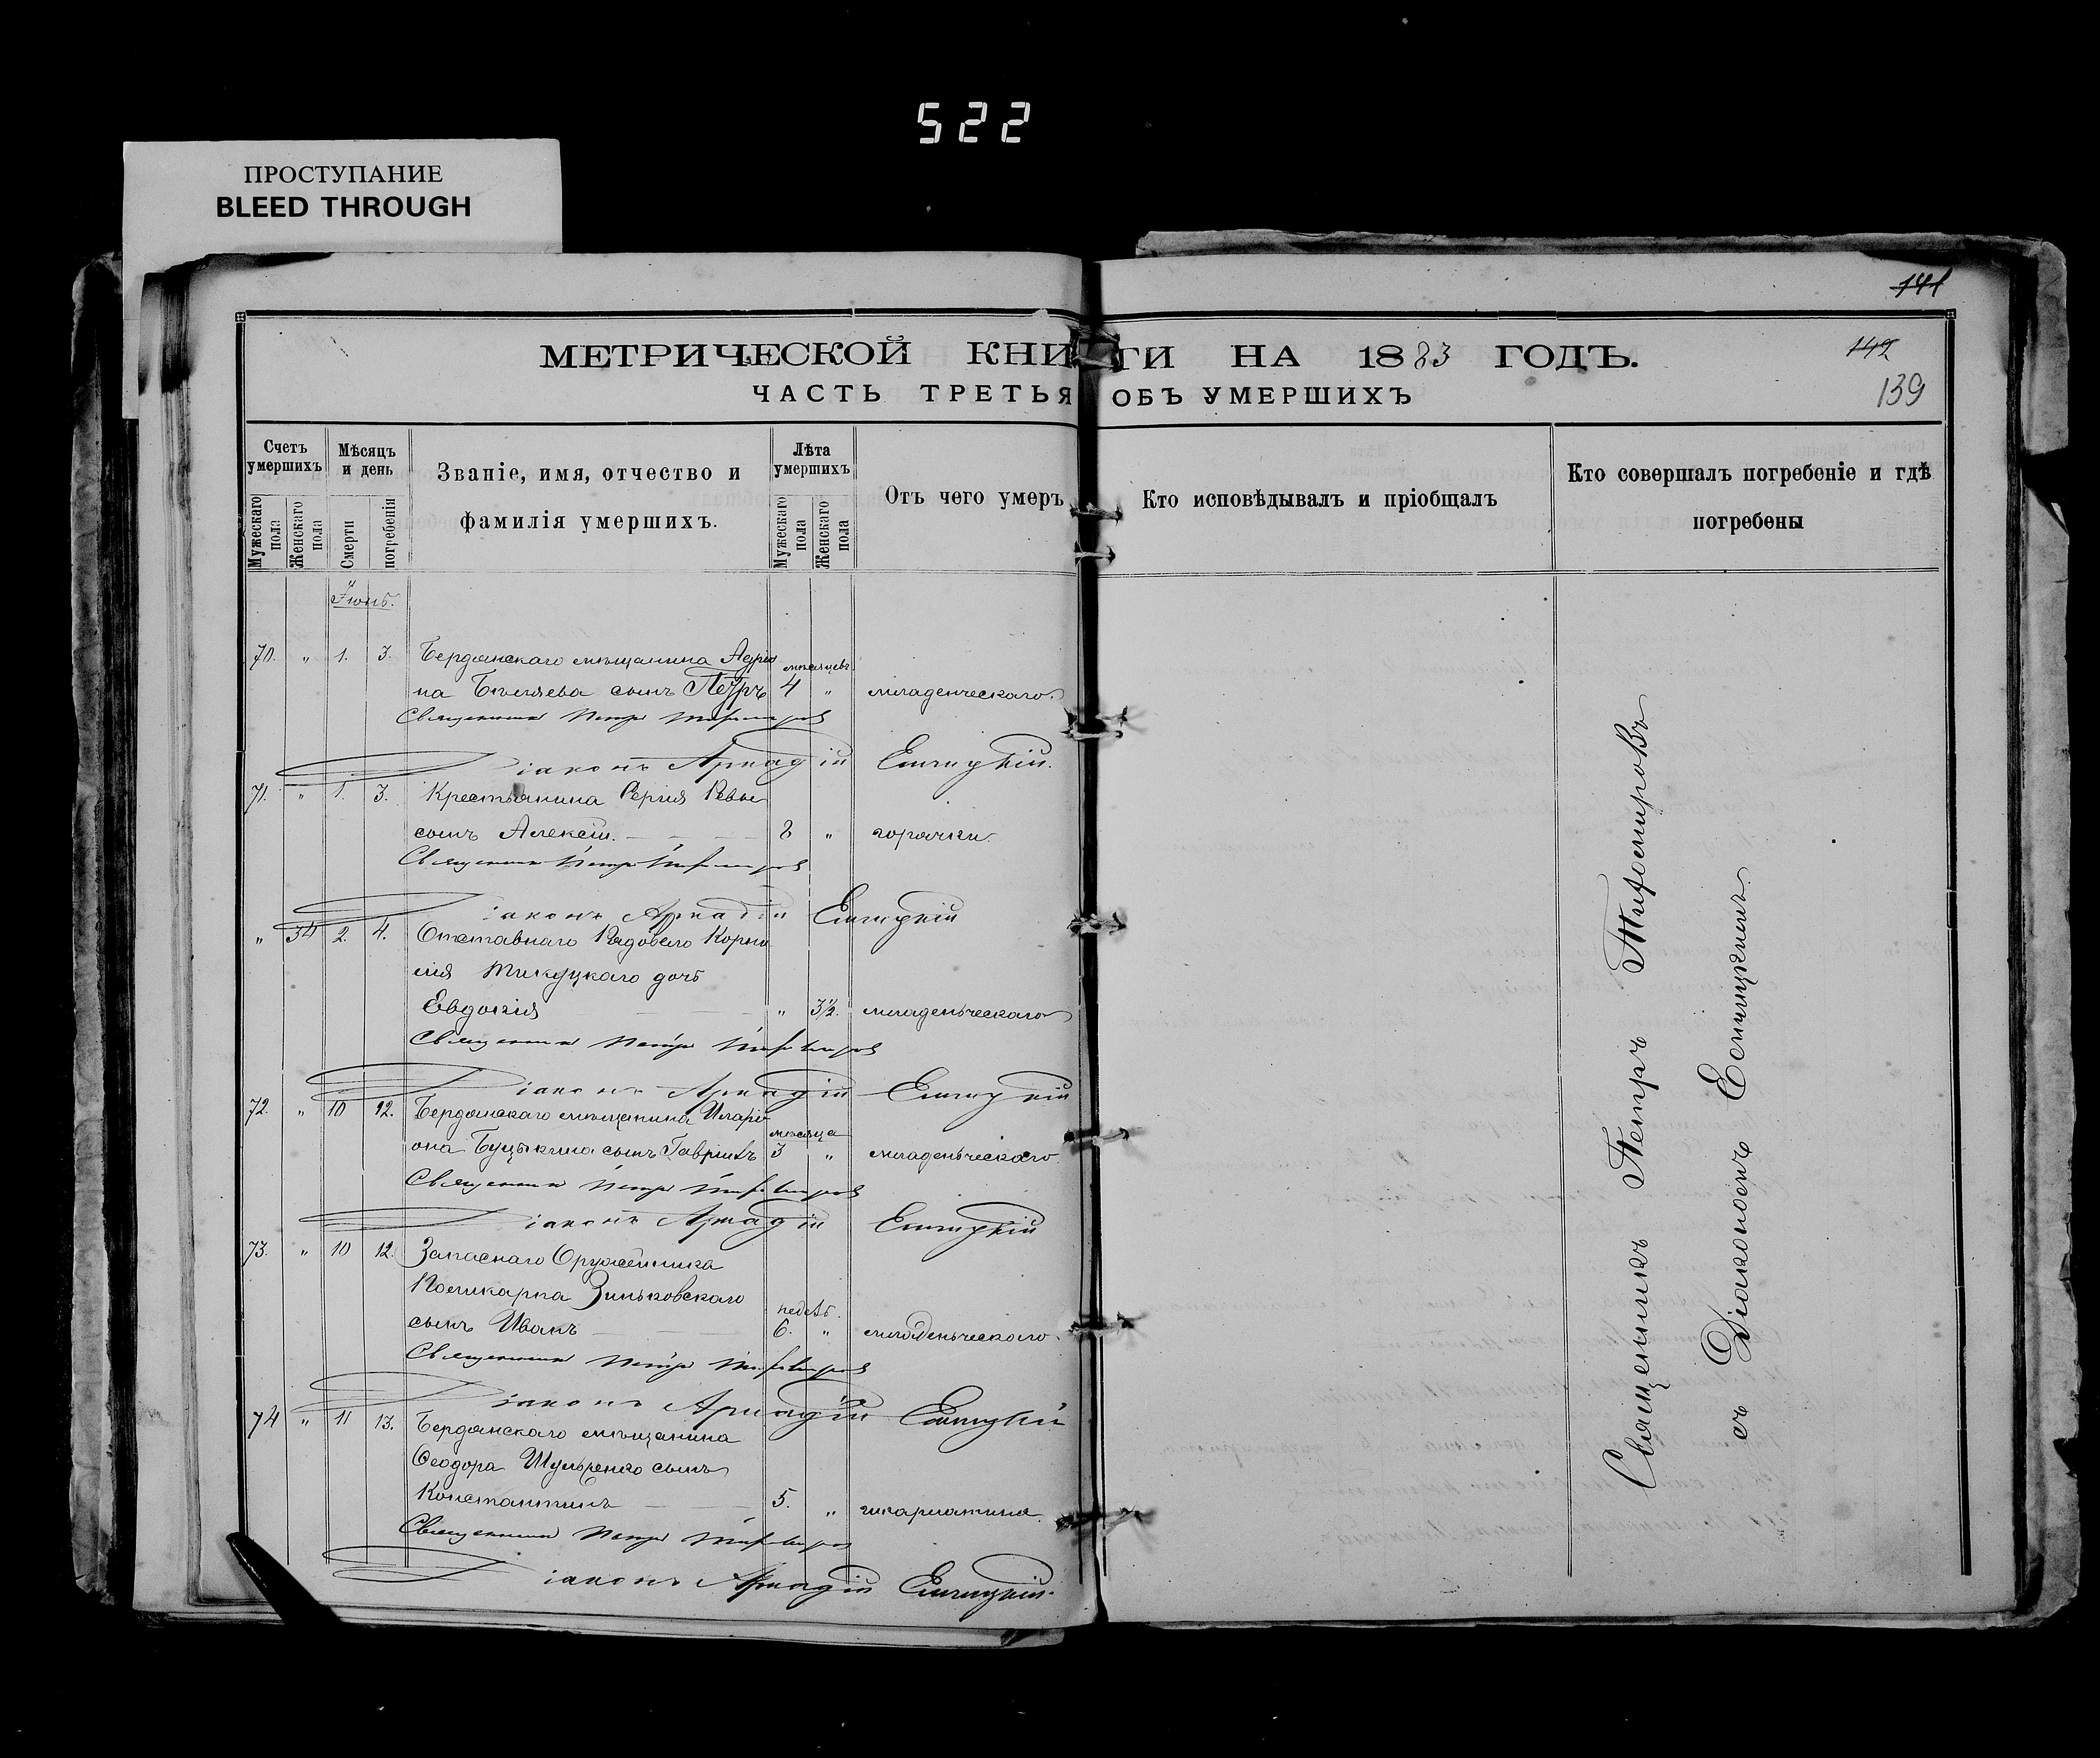 522
ПРОСТУПАНИЕ
BLEED THROUGH
141
МЕТРИЧЕСКОЙ КНИГИ НА 1883 ГОДЪ.
142
ЧАСТЬ ТРЕТЬЯ ОБЪ УМЕРШИХЪ
139
Счетъ умершихъ
Мѣсяцъ и день
Званіе, имя, отчество и фамилія умершихъ.
Лѣта умершихъ
Отъ чего умеръ
Кто исповѣдывалъ и пріобщалъ
Кто совершалъ погребеніе и гдѣ погребены
Мужескаго пола
Женскаго пола
Смерти
погребенія
Мужескаго пола
Женскаго пола
Іюнь.
70. " 1. 3. Бердянскаго мѣщанина Адріа мѣсяцевъ
на Бѣляева сынъ Петръ 4 " младенческаго.
Священникъ Петръ Тифомировъ
Діаконъ Аркадій
71. " 1. 3. Крестьянина Сергія
сынъ Алексій. 8 " горячки.
Священникъ Петръ Тифомировъ
Діаконъ Аркадій
" 34 2. 4. Отставнаго Рядоваго Корни
лія дочь
Евдокія " 3½. младеньческаго
Священникъ Петръ Тифомировъ
Діаконъ Аркадій
72. " 10 12. Бердянскаго мѣщанина Иларі
мѣсяца
она сынъ Гавріилъ 3 " младеньческаго
Священникъ Петръ Тифомировъ
Діаконъ Аркадій
73. " 10 12. Запаснаго Оружейника
Поликарпа Зиньковскаго
недѣль.
сынъ Иванъ 6. " младеньческаго.
Священникъ Петръ Тифомировъ
Діаконъ Аркадій
74 " 11 13. Бердянскаго мѣщанина
Ѳеодора сынъ
Константинъ 5. " шкарлатина.
Священникъ Петръ Тифомировъ
Діаконъ Аркадій
Священникъ Петръ Тифомировъ
съ Діакономъ